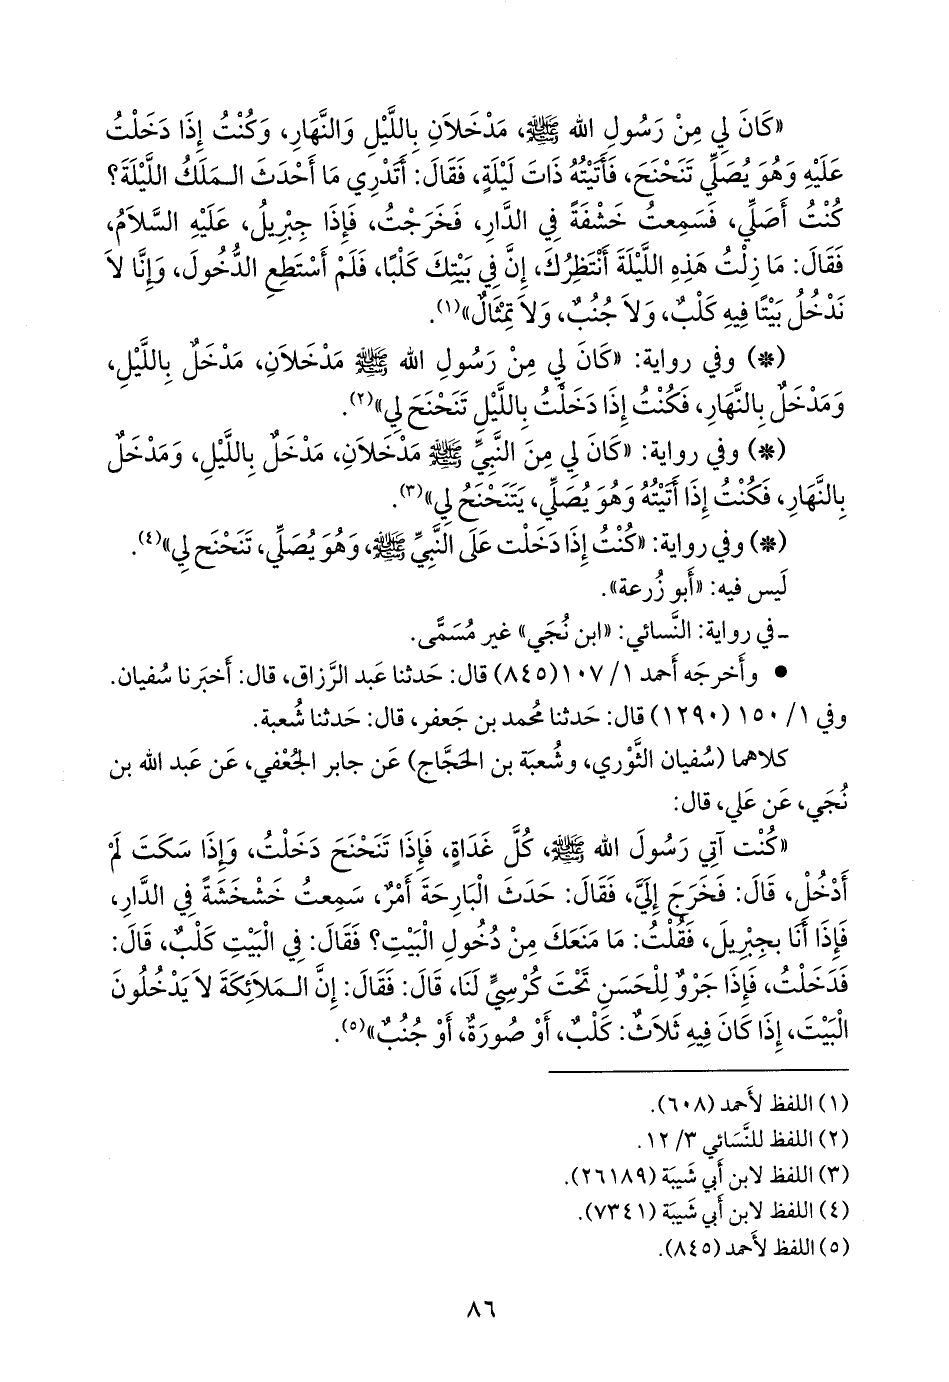 «كَانَ لِي مِنْ رَسُولِ الله ﷺ، مَدْخَلاَنِ بِاللَّيْلِ وَالنَّهَارِ، وَكُنْتُ إِذَا دَخَلْتُ
عَلَيْهِ وَهُوَ يُصَلِّي تَنَحْنَحَ، فَأَتَيْتُهُ ذَاتَ لَيْلَةٍ، فَقَالَ: أَتَدْرِي مَا أَحْدَثَ الْمَلَكُ اللَّيْلَةَ؟
كُنْتُ أُصَلِّي، فَسَمِعتُ خَشْفَةً فِي الدَّارِ، فَخَرَجْتُ، فَإِذَا جِبْرِيلُ، عَلَيْهِ السَّلاَمُ،
فَقَالَ: مَا زِلْتُ هَذِهِ اللَّيْلَةَ أَنْتَظِرُكَ، إِنَّ فِي بَيْتِكَ كَلْبًا، فَلَمْ أَسْتَطِعِ الدُّخُولَ، وَإِنَّا لاَ
نَدْخُلُ بَيْتًا فِيهِ كَلْبٌ، وَلاَ جُنُبٌ، وَلاَ تِمْثَالٌ»(١).
(*) وفي رواية: «كَانَ لِي مِنْ رَسُولِ الله ﷺ مَدْخَلاَنِ، مَدْخَلٌ بِاللَّيْلِ،
وَمَدْخَلٌ بِالنَّهَارِ، فَكُنْتُ إِذَا دَخَلْتُ بِاللَّيْلِ تَنَحْنَحَ لِي»(٢).
(*) وفي رواية: «كَانَ لِي مِنَ النَّبِيِّ ﷺ مَدْخَلاَنِ، مَدْخَلٌ بِاللَّيْلِ، وَمَدْخَلٌ
بِالنَّهَارِ، فَكُنْتُ إِذَا أَتَيْتُهُ وَهُوَ يُصَلِّي، يَتَنَحْنَحُ لِي»(٣).
(*) وفي رواية: «كُنْتُ إِذَا دَخَلْت عَلَى النَّبِيِّ ﷺ، وَهُوَ يُصَلِّي، تَنَحْنَح لِي»(٤).
لَيس فيه: «أَبو زُرعة».
ـ في رواية: النَّسائي: «ابن نُجَي» غير مُسَمًّى.
• وأَخرجَه أحمد ١/ ١٠٧ (٨٤٥) قال: حَدثنا عَبد الرَّزاق، قال: أَخبَرنا سُفيان.
وفي ١/ ١٥٠ (١٢٩٠) قال: حَدثنا مُحمد بن جَعفر، قال: حَدثنا شُعبة.
كلاهما (سُفيان الثَّوْري، وشُعبَة بن الحَجَّاج) عَن جابر الجُعْفي، عَن عَبد الله بن
نُجَي، عَن علي، قال:
«كُنْت آتِي رَسُولَ الله ﷺ، كُلَّ غَدَاةٍ، فَإِذَا تَنَحْنَحَ دَخَلْتُ، وَإِذَا سَكَتَ لَمْ
أَدْخُلْ، قَالَ: فَخَرَجَ إِلَيَّ، فَقَالَ: حَدَثَ الْبَارِحَةَ أَمْرٌ، سَمِعتُ خَشْخَشَةً فِي الدَّارِ،
فَإِذَا أَنَا بِجِبْرِيلَ، فَقُلْتُ: مَا مَنَعَكَ مِنْ دُخُولِ الْبَيْتِ؟ فَقَالَ: فِي الْبَيْتِ كَلْبٌ، قَالَ:
فَدَخَلْتُ، فَإِذَا جَرْوٌ لِلْحَسَنِ تَحْتَ كُرْسِيٍّ لَنَا، قَالَ: فَقَالَ: إِنَّ الْمَلاَئِكَةَ لاَ يَدْخُلُونَ
الْبَيْتَ، إِذَا كَانَ فِيهِ ثَلاَثٌ: كَلْبٌ، أَوْ صُورَةٌ، أَوْ جُنُبٌ»(٥).
(١) اللفظ لأَحمد (٦٠٨).
(٢) اللفظ للنَّسَائي ٣/ ١٢.
(٣) اللفظ لابن أَبي شَيبَة (٢٦١٨٩).
(٤) اللفظ لابن أَبي شَيبَة (٧٣٤١).
(٥) اللفظ لأَحمد (٨٤٥).
٨٦